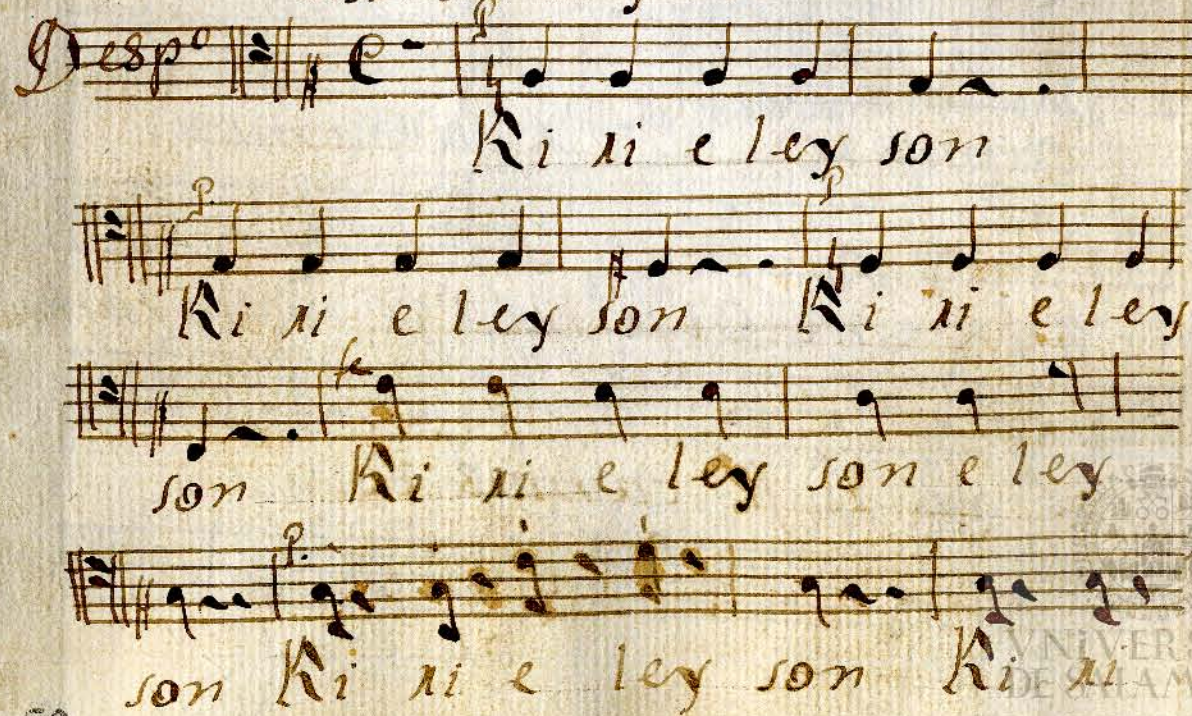 Desp.º P
Ki ri e ley son
P. P
Ki ri e ley son Ki ri e ley
fe
son Ki ri e ley son e ley
P.
son Ki ri e ley son Ki ri
VNiVER
DE SALAM